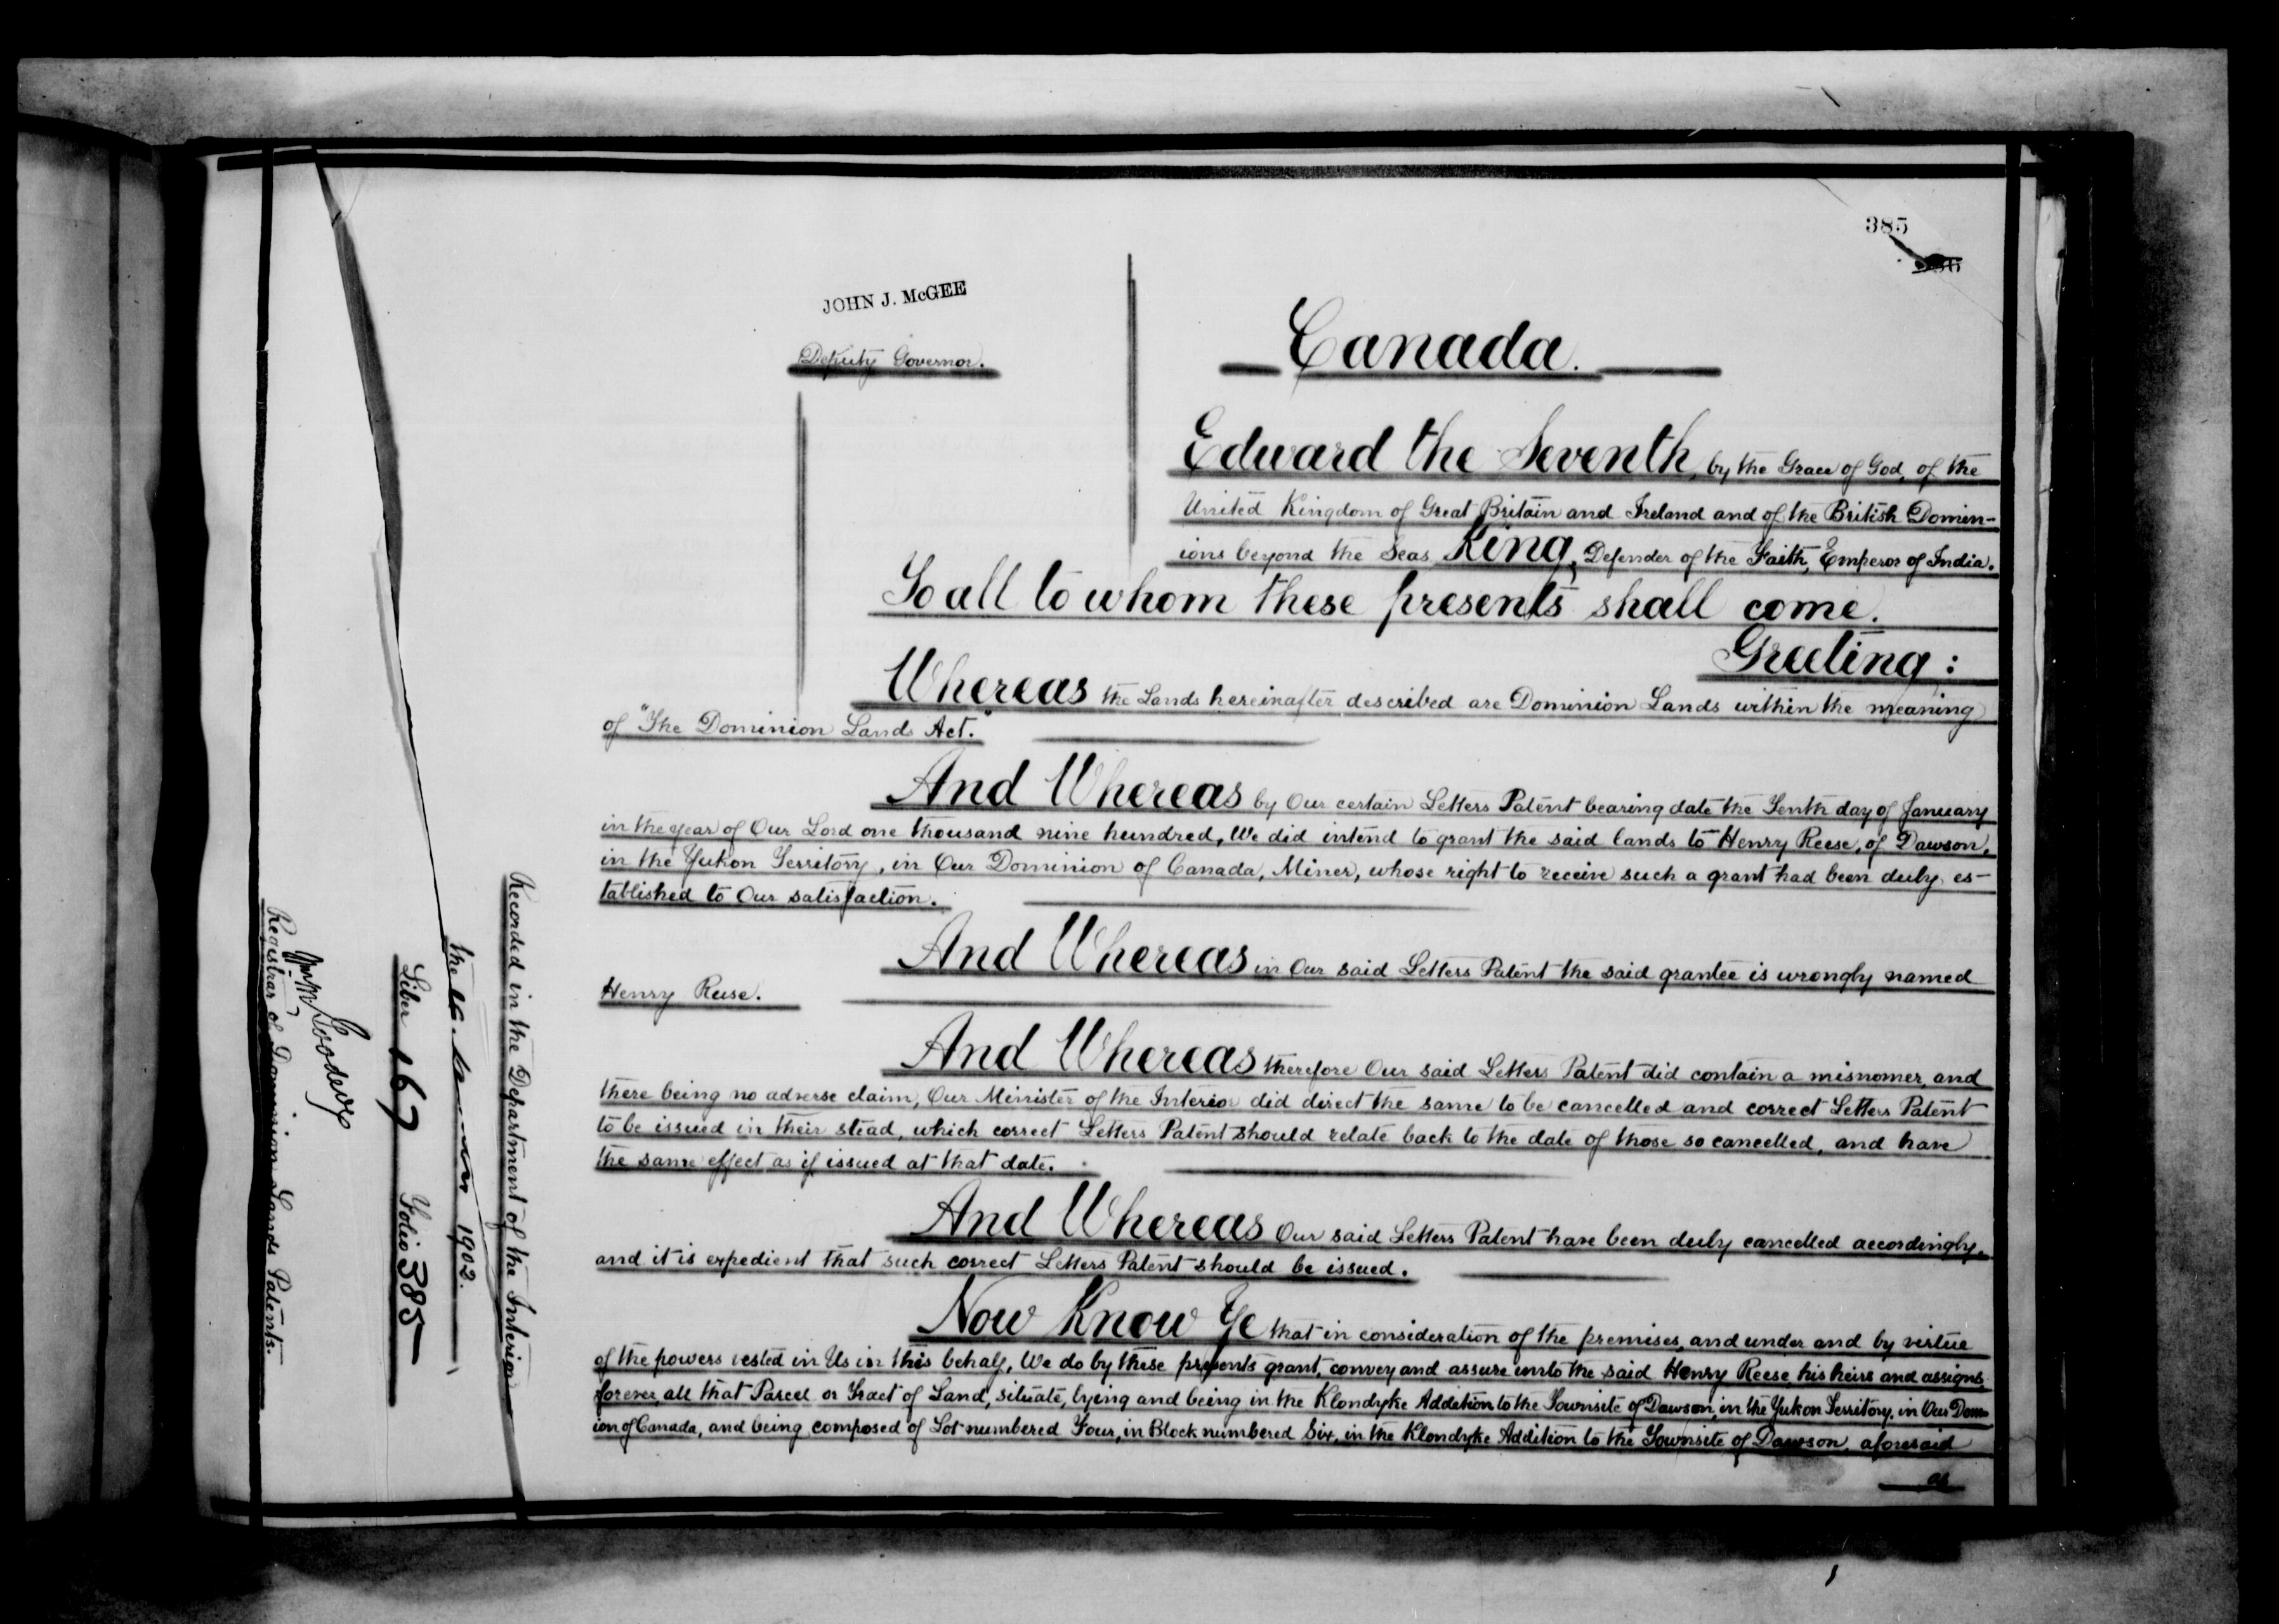 385
JOHN J. McGEE
Deputy Governor.
Canada.
Edward the Seventh, by the Grace of God, of the
United Kingdom of Great Britain and Ireland and of the British Domin-
ions beyond the Seas King, Defender of the Faith, Emperor of India.
To all to whom these presents shall come.
Greeting:
Whereas the Lands hereinafter described are Dominion Lands within the meaning
of "The Dominion Lands Act."
And Whereas by Our certain Letters Patent bearing date the Tenth day of January
in the year of Our Lord one thousand nine hundred, We did intend to grant the said lands to Henry Reese, of Dawson,
in the Yukon Territory, in Our Dominion of Canada, Miner, whose right to receive such a grant had been duly es-
tablished to Our satisfaction.
And Whereas in Our said Letters Patent the said grantee is wrongly named
Henry Ruse.
And Whereas therefore Our said Letters Patent did contain a misnomer, and
there being no adverse claim, Our Minister of the Interior did direct the same to be cancelled and correct Letters Patent
to be issued in their stead, which correct Letters Patent should relate back to the date of those so cancelled, and have
the same effect as if issued at that date.
And Whereas Our said Letters Patent have been duly cancelled accordingly,
and it is expedient that such correct Letters Patent should be issued.
Now Know Ye that in consideration of the premises, and under and by virtue
of the powers vested in Us in this behalf, We do by these presents grant, convey and assure unto the said Henry Reese, his heirs and assigns
forever, all that Parcel or Tract of Land, situate, lying and being in the Klondyke Addition to the Townsite of Dawson, in the Yukon Territory, in Our Domin-
ion of Canada, and being composed of Lot numbered Four, in Block numbered Six, in the Klondyke Addition to the Townsite of Dawson, aforesaid
as
Recorded in the Department of the Interior
the 1902.
Liber 167 Folio 385
Registrar of Dominion Lands Patents.